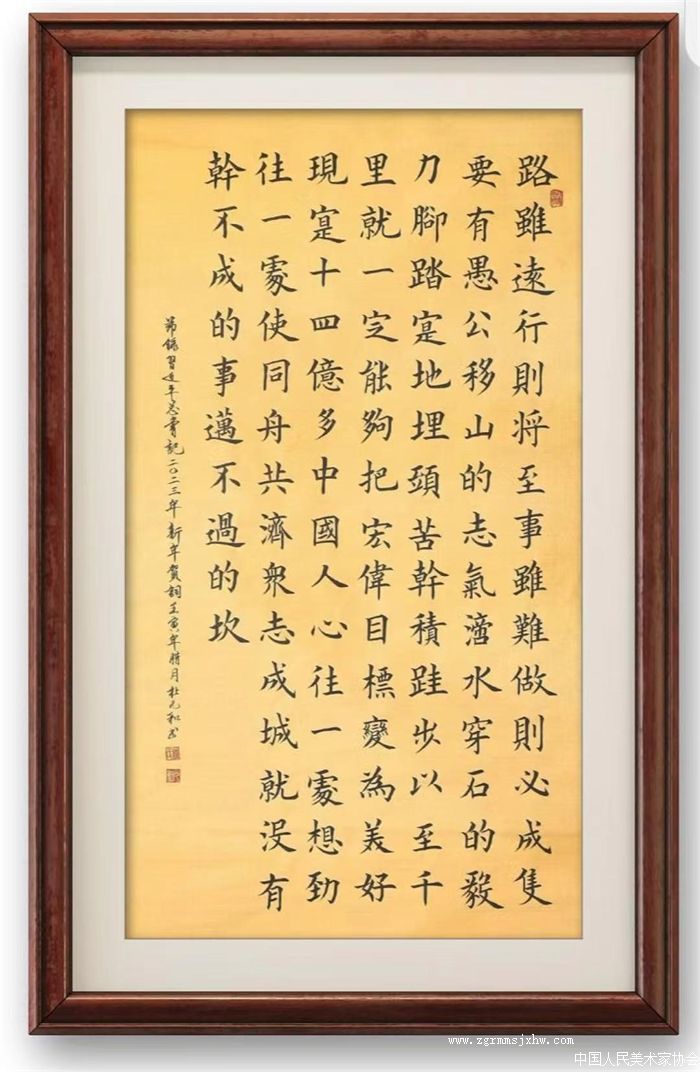 路雖遠行則将至事雖難做則必成隻
要有愚公移山的志氣滴水穿石的毅
力腳踏寔地埋頭苦幹積跬步以至千
里就一定能夠把宏偉目標變為美好
現寔十四億多中國人心往一處想勁
往一處使同舟共濟衆志成城就没有
幹不成的事邁不過的坎
節錄習近平总書記二〇二三年新年賀詞壬寅年腊月杜元和书
www.zgrmmsjxhw.com
中国人民美术家协会